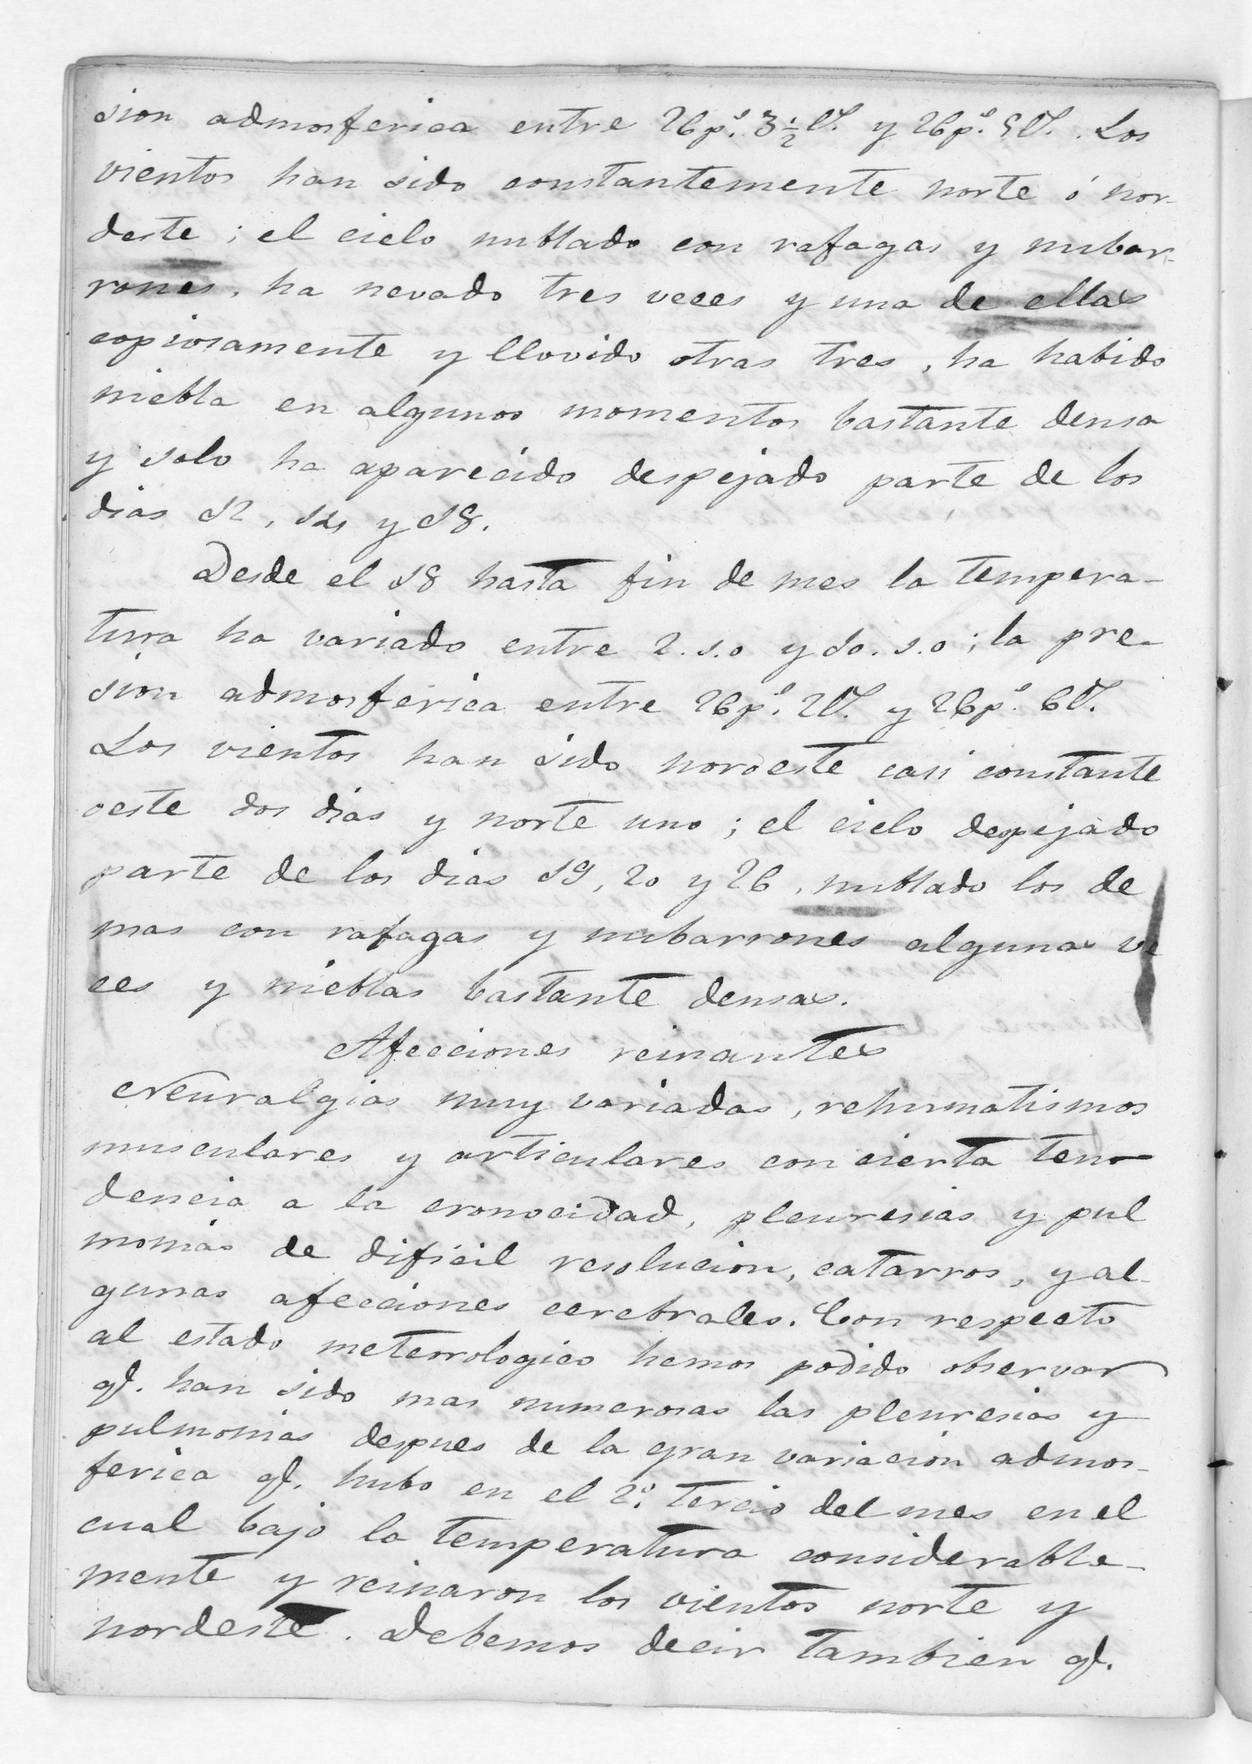 sion admosferica entre 26p.ˢ 3½l.ˢ y 26p.ˢ 5l.ˢ. Los
vientos han sido constantemente norte ó nor-
deste; el cielo nublado con rafagas y nubar-
rones, ha nevado tres veces y una de ellas
copiosamente y llovido otras tres, ha habido
niebla en algunos momentos bastante densa
y solo ha aparecido despejado parte de los
dias 12, 14 y 18.
Desde el 18 hasta fin de mes la tempera-
tura ha variado entre 2.s.o y 10.s.o; la pre-
sion admosferica entre 26p.ˢ 2l.ˢ y 26p.ˢ 6l.ˢ
Los vientos han sido noroeste casi constante
oeste dos dias y norte uno; el cielo depejado
parte de los dias 19, 20 y 26, nublado los de
mas con rafagas y nubarrones algunas ve
ces y nieblas bastante densas.
Afecciones reinantes
Neuralgias muy variadas, rehumatismos
musculares y articulares con cierta ten-
dencia a la cronocidad, pleuresias y pul
monias de dificil resolucion, catarros, y al-
gunas afecciones cerebrales. Con respecto
al estado meteorologico hemos podido observar
q.ᵉ han sido mas numerosas las pleuresias y
pulmonias despues de la gran variacion admos-
ferica q.ᵉ hubo en el 2.º tercio del mes en el
cual bajó la temperatura considerable-
mente y reinaron los vientos norte y
nordeste. Debemos decir tambien q.ᵉ